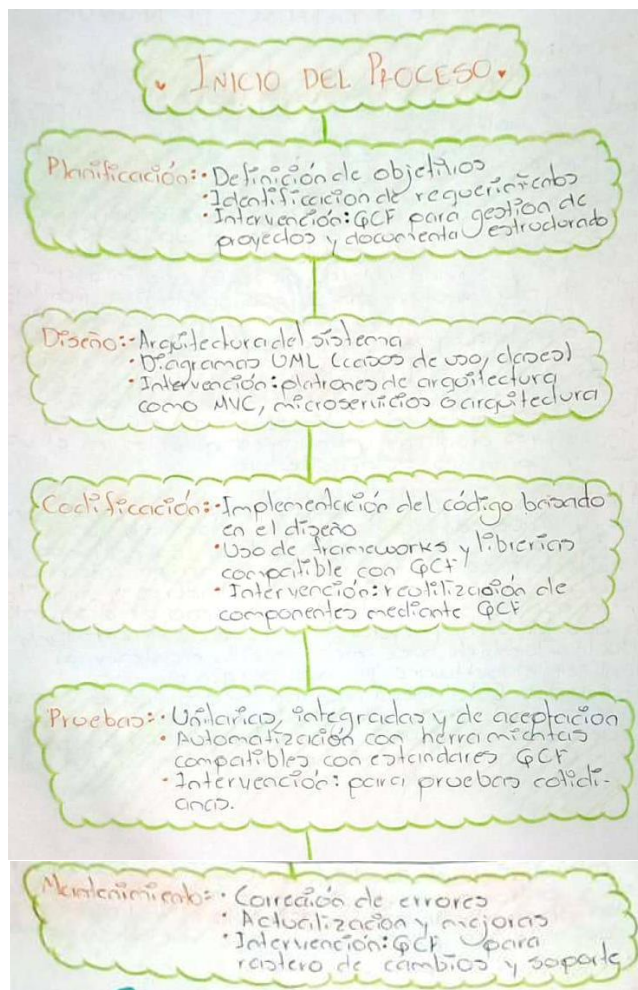 INICIO DEL PROCESO
Planificación: • Definición de objetivos
• Identificación de requerimientos
• Intervención: GCF para gestion de
proyectos y documenta estructurado
Diseño: • Arquitectura del sistema
• Diagramas UML (casos de uso, clases)
• Intervención: platrones de arquitectura
como MVC, microservicios o arquitectura
Codificación: • Implementación del código basado
en el diseño
• Uso de frameworks y librerias
compatible con GCF
• Intervención: reutilización de
componentes mediante GCF
Pruebas: • Unitarias, integradas y de aceptacion
• Automatización con herramientas
compatibles con estandares GCF
• Intervención: para pruebas cotidi-
anas.
Mantenimiento: • Corrección de errores
• Actualizacion y mejoras
• Intervención: GCF para
rastero de cambios y soporte